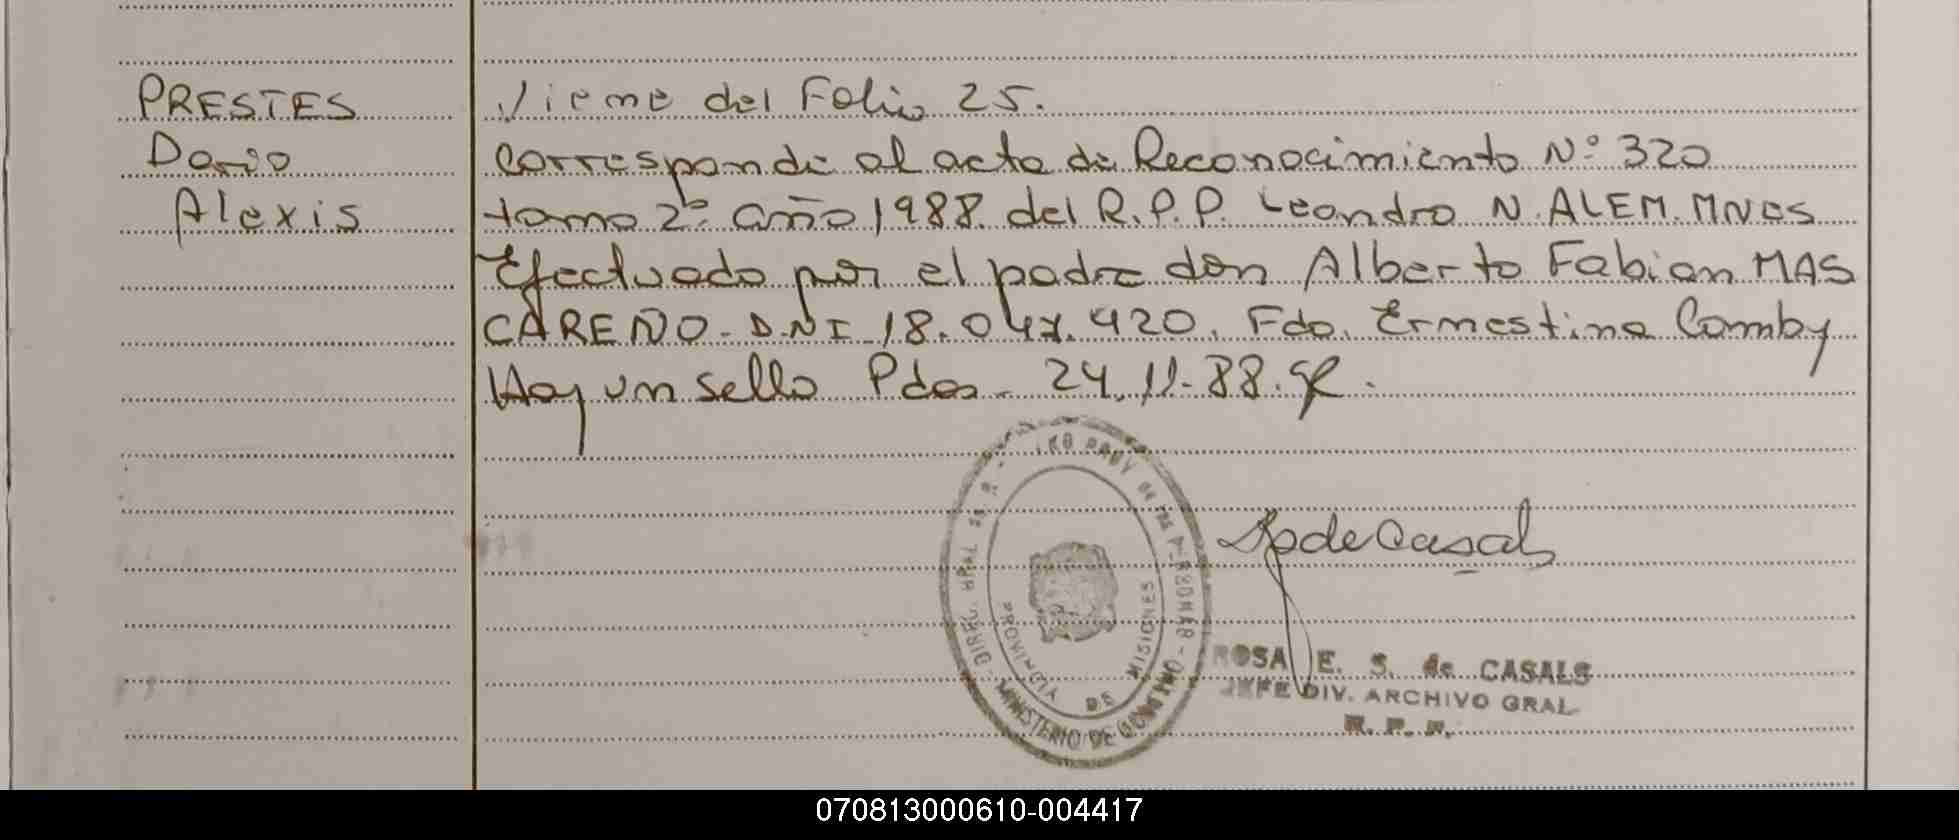 PRESTES
Dario
Alexis
Viene del Folio 25.
Corresponde al acta de Reconocimiento Nº 320
tomo 2º año 1988. del R.P.P. Leandro N. ALEM. MNES
Efectuado por el padre don Alberto Fabian MAS
CAREÑO. D.N.I 18.047.420. Fdo. Ernestina Comby
Hay un sello Pdas. 24.11.88.
DIREC. GRAL DEL PROV DE LAS PERSONAS
MINISTERIO DE GOBIERNO
PROVINCIA DE MISIONES
de Casals
ROSA E. S. de CASALS
JEFE DIV. ARCHIVO GRAL
R. P. P.
070813000610-004417